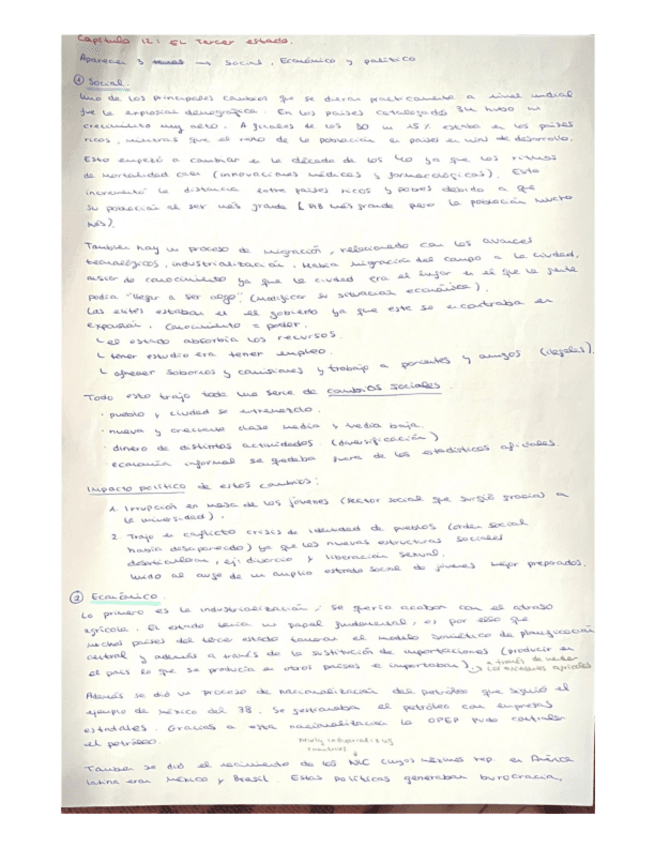 Capítulo 12: El Tercer estado.
Aparecen 3 temas → Social, Económico y político
① Social.
Uno de los principales cambios que se dieron practicamente a nivel mundial
fue la explosión demográfica. En los países catalogados 3M hubo un
crecimiento muy alto. A finales de los 50 un 15% estaba en los países
ricos, mientras que el resto de la población en países en vías de desarrollo.
Esto empezó a cambiar en la década de los 40 ya que los ritmos
de mortalidad caen (innovaciones médicas y farmacológicas). Esto
incrementó la distancia entre países ricos y pobres debido a que
su población al ser más grande ( PIB más grande pero la población mucho
más).
También hay un proceso de migración, relacionado con los avances
tecnológicos, industrialización. Había migración del campo a la ciudad,
de conocimiento ya que la ciudad era el lugar en el que la gente
podía "llegar a ser algo" (modificar su situación económica).
Las elites estaban en el gobierno ya que este se encontraba en
expansión. Conocimiento = poder.
↳ el estado absorbía los recursos.
↳ tener estudio era tener empleo.
↳ ofrecer sobornos y comisiones y trabajo a parientes y amigos (ilegales).
Todo esto trajo toda una serie de cambios sociales.
· pueblo y ciudad se entremezcló.
· nueva y creciente clase media y media baja.
· dinero de distintas actividades (diversificación)
· economía informal se quedaba fuera de las estadísticas oficiales.
Impacto político de estos cambios:
1. Irrupción en masa de los jóvenes (sector social que surgió gracias a
la universidad).
2. Trajo en conflicto crisis de identidad de pueblos (orden social
había desaparecido) ya que las nuevas estructuras sociales
desarticulaban, ej: divorcio y liberación sexual.
unido al auge de un amplio estrato social de jóvenes mejor preparados.
② Económico.
Lo primero es la industrialización, se quería acabar con el atraso
agrícola. El estado tenía un papel fundamental, es por ello que
muchos países del tercer estado tomaron el modelo soviético de planificación
central y además a través de la sustitución de importaciones (producir en
el país lo que se producía en otros países e importaban) ↳ a través de vender
los excedentes agrícolas
Además se dió un proceso de nacionalización del petróleo que siguió el
ejemplo de México del 38. Se gestionaba el petróleo con empresas
estatales. Gracias a esta nacionalización la OPEP pudo controlar
el petróleo.
Newly industrializing
countries
También se dió el nacimiento de los NIC cuyos máximos rep. en América
latina eran México y Brasil. Estas políticas generaban burocracia,